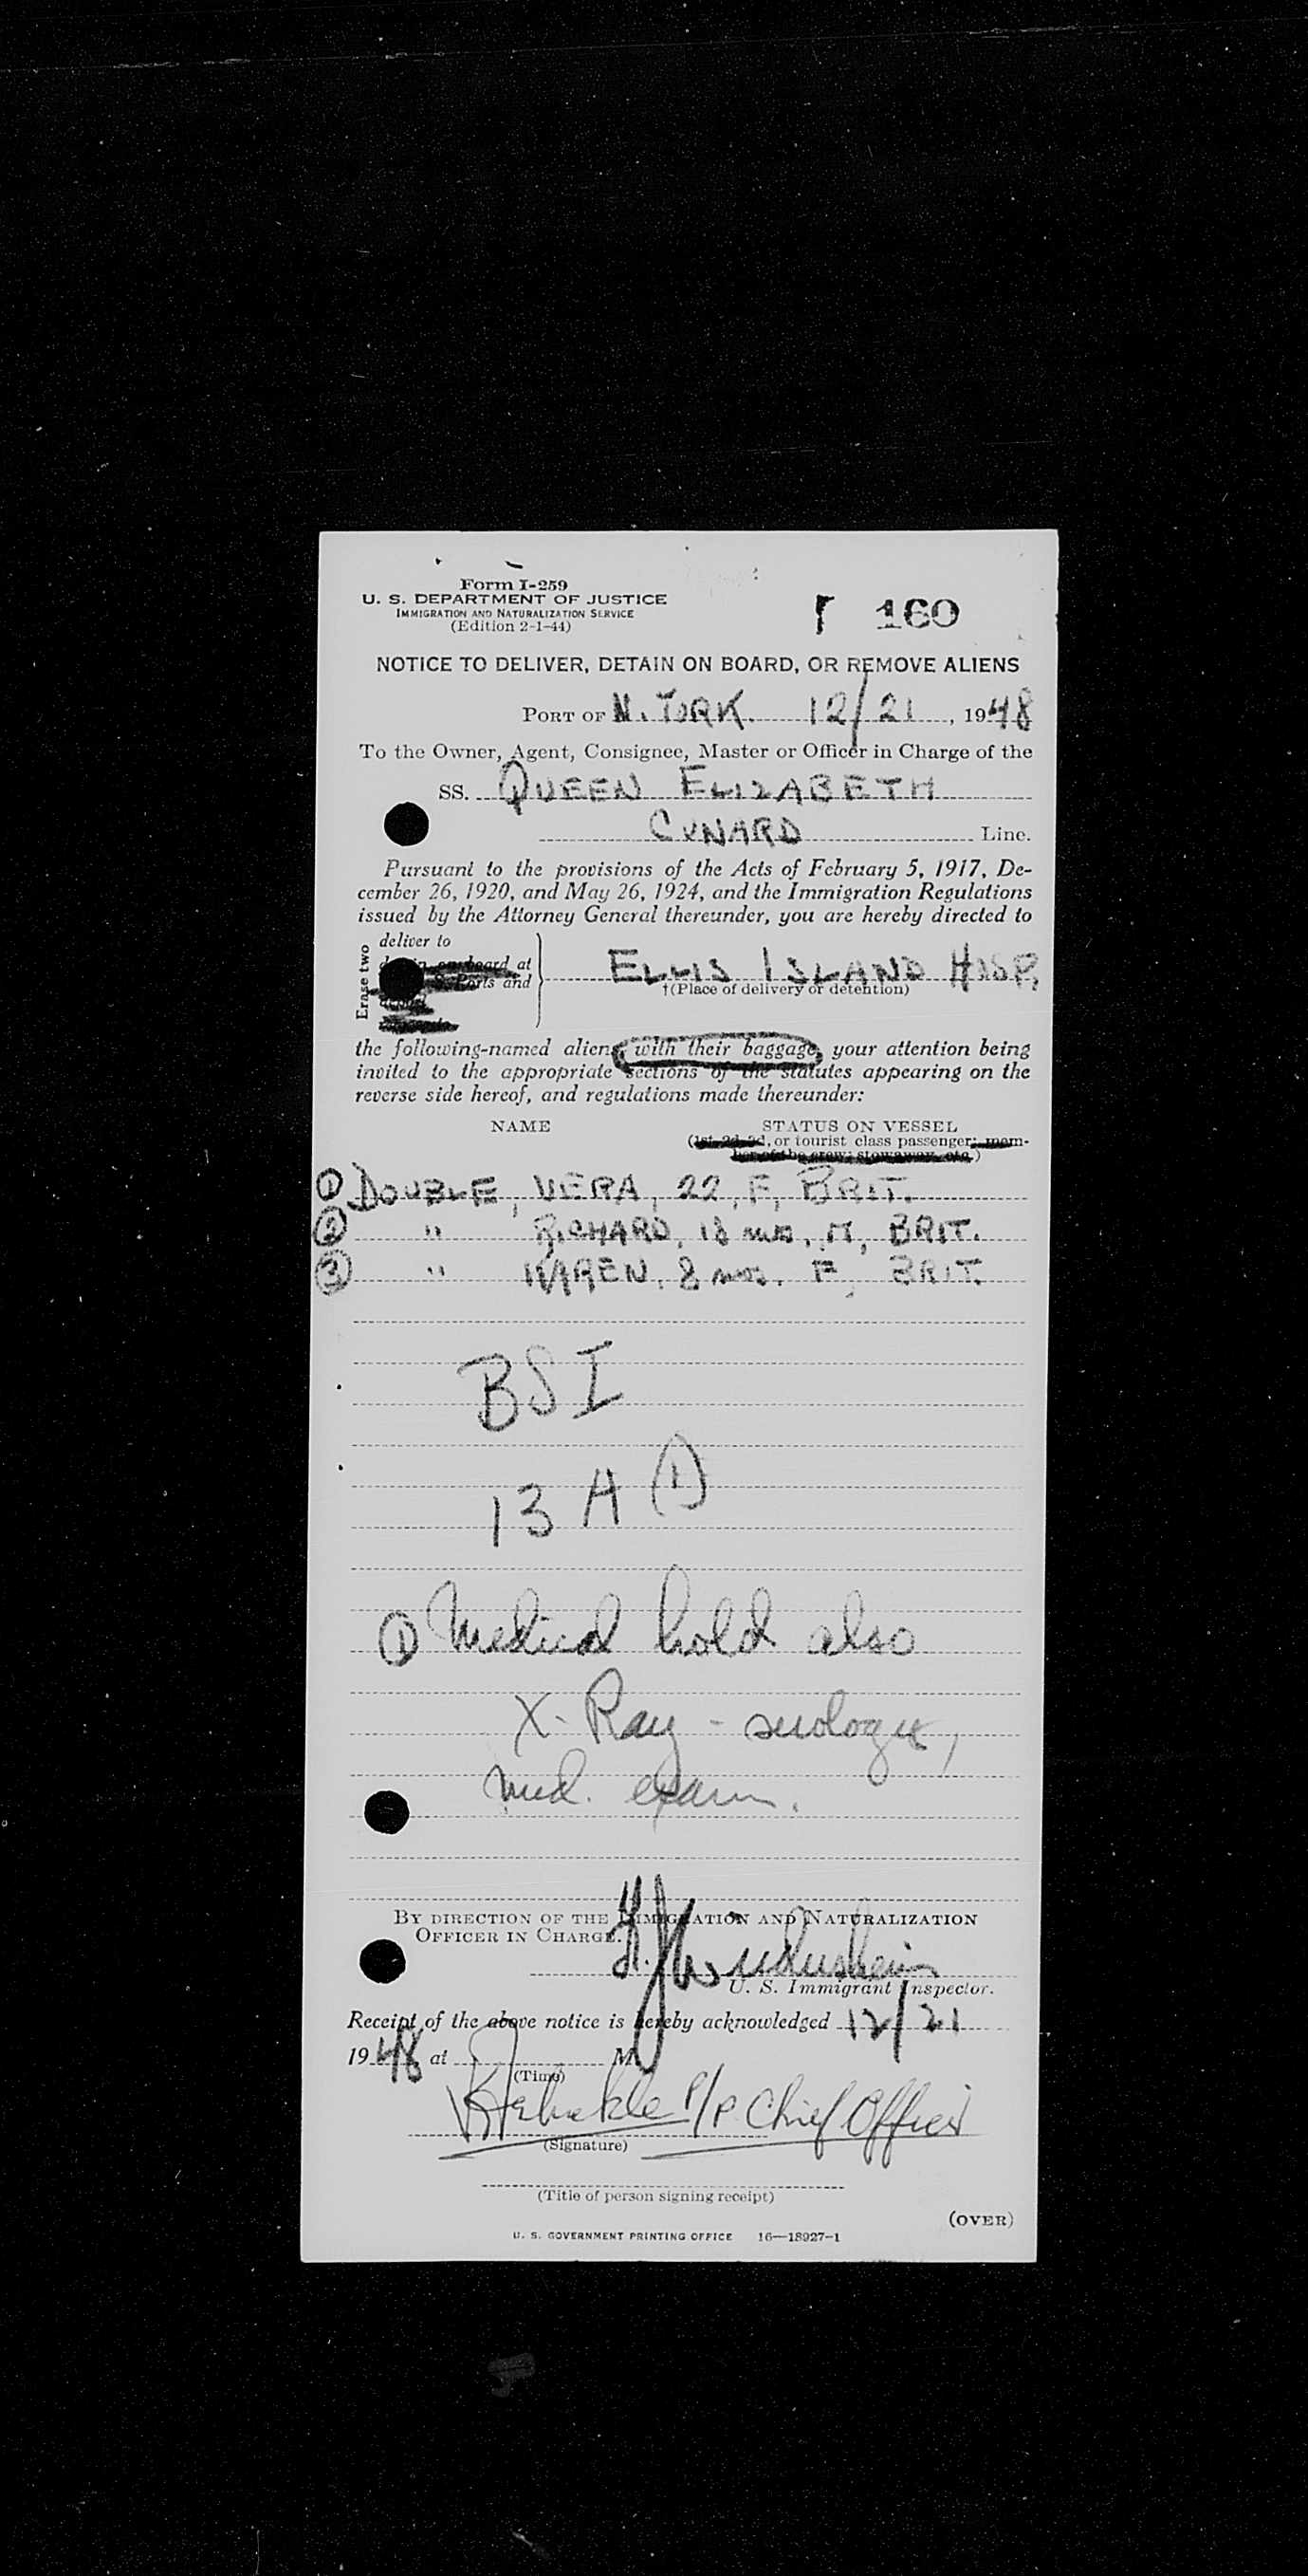 Form I-259
U. S. DEPARTMENT OF JUSTICE
IMMIGRATION AND NATURALIZATION SERVICE
(Edition 2-1-44)
160
NOTICE TO DELIVER, DETAIN ON BOARD, OR REMOVE ALIENS
PORT OF N. YORK. 12/21, 1948
To the Owner, Agent, Consignee, Master or Officer in Charge of the
SS. QUEEN ELIZABETH
CUNARD Line.
Pursuant to the provisions of the Acts of February 5, 1917, De-
cember 26, 1920, and May 26, 1924, and the Immigration Regulations
issued by the Attorney General thereunder, you are hereby directed to
Erase two
deliver to
on board at
Ports and
ELLIS ISLAND HOSP.
†(Place of delivery or detention)
the following-named aliens with their baggage, your attention being
invited to the appropriate sections of the statutes appearing on the
reverse side hereof, and regulations made thereunder:
NAME STATUS ON VESSEL
(1st, 2d, 3d, or tourist class passenger; mem-
ber of the crew; stowaway, etc.)
① DOUBLE, VERA, 22, F, BRIT.
② " RICHARD, 18 mos, M, BRIT.
③ " KAREN, 8 mos. F, BRIT.
BSI
13 A (1)
① Medical hold also
X-Ray - serology,
med. exam.
BY DIRECTION OF THE IMMIGRATION AND NATURALIZATION
OFFICER IN CHARGE.
U. S. Immigrant Inspector.
Receipt of the above notice is hereby acknowledged 12/21
1948 at M
(Time)
P/P Chief Officer
(Signature)
(Title of person signing receipt)
(OVER)
U. S. GOVERNMENT PRINTING OFFICE 16—18927-1